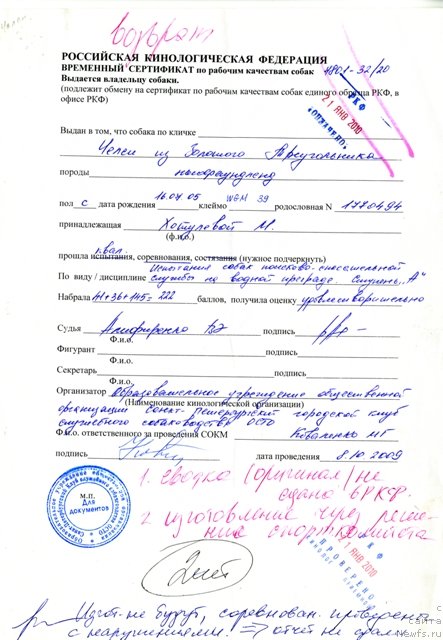 возврат
РОССИЙСКАЯ КИНОЛОГИЧЕСКАЯ ФЕДЕРАЦИЯ
ВРЕМЕННЫЙ СЕРТИФИКАТ по рабочим качествам собак 4801-32/20
Выдается владельцу собаки.
(подлежит обмену на сертификат по рабочим качествам собак единого образца РКФ, в
офисе РКФ)
РКФ
21 ЯНВ 2010
Выдан в том, что собака по кличке
Челси из Золотого Треугольника
породы ньюфаундленд
пол с дата рождения 16.04 05 клеймо WGM 39 родословная N 1770494
принадлежащая Хотулевой М.
(ф.и.о.)
I квал.
прошла испытания, соревнования, состязания (нужное подчеркнуть)
Испытания собак поисково-спасательной
По виду / дисциплине службы на водной преграде. Ступень „А"
Набрала 41+36+145=222 баллов, получила оценку удовлетворительно
Судья Алифиренко ВЭ подпись
Ф.и.о.
Фигурант подпись
Ф.и.о.
Секретарь подпись
Ф.и.о.
Организатор Образовательное учреждение общественной
(Наименование кинологической организации)
организации Санкт-Петербургский городской клуб
служебного собаководства ОСТО
Ф.и.о. ответственного за проведения СОКМ Коваленко МГ
подпись дата проведения 8.10.2009
М.П.
Для документов
1. Сводка (оригинал) не
сдана в РКФ.
2. изготовление через реше-
ние спорткомитета
РКФ
ПРОВЕРЕНО
21 ЯНВ 2010
Изгот-не будут, соревнован. проведено
с нарушениями. => отчёт не сдали
с сайта Newfs.ru